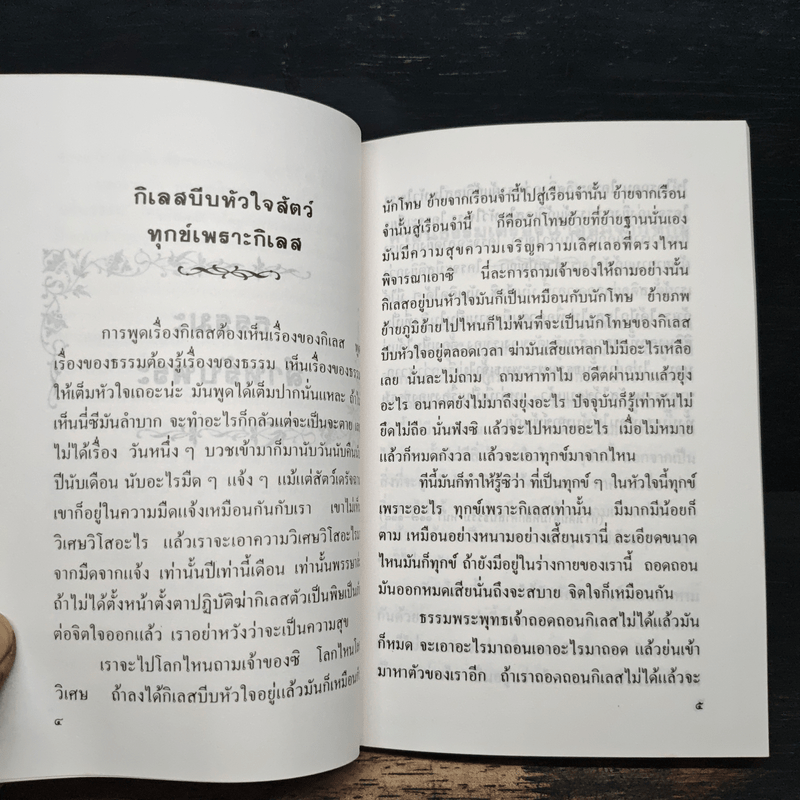 กิเลสบีบหัวใจสัตว์
ทุกข์เพราะกิเลส
การพูดเรื่องกิเลสต้องเห็นเรื่องของกิเลส
เรื่องของธรรมต้องรู้เรื่องของธรรม เห็นเรื่องของธรรม
ให้เต็มหัวใจเถอะน่ะ มันพูดได้เต็มปากนั่นแหละ ถ้า
เห็นนี่ซีมันลำบาก จะทำอะไรก็กลัวแต่จะเป็นจะตาย
ไม่ได้เรื่อง วันหนึ่ง ๆ บวชเข้ามาก็มานับวันนับคืน
ปีนับเดือน นับอะไรมืด ๆ แจ้ง ๆ แม้แต่สัตว์เดรัจ
เขาก็อยู่ในความมืดแจ้งเหมือนกันกับเรา เขาไม่เห็น
วิเศษวิโสอะไร แล้วเราจะเอาความวิเศษวิโสอะไร
จากมืดจากแจ้ง เท่านั้นปีเท่านี้เดือน เท่านั้นพรรษา
ถ้าไม่ได้ตั้งหน้าตั้งตาปฏิบัติฆ่ากิเลสตัวเป็นพิษเป็น
ต่อจิตใจออกแล้ว เราอย่าหวังว่าจะเป็นความสุข
เราจะไปโลกไหนถามเจ้าของซิ โลกไหน
วิเศษ ถ้าลงได้กิเลสบีบหัวใจอยู่แล้วมันก็เหมือน
๔
นักโทษ ย้ายจากเรือนจำนี้ไปสู่เรือนจำนั้น ย้ายจากเรือน
จำนั้นสู่เรือนจำนี้ ก็คือนักโทษย้ายที่ย้ายฐานนั่นเอง
มันมีความสุขความเจริญความเลิศเลอที่ตรงไหน
พิจารณาเอาซิ นี่ละการถามเจ้าของให้ถามอย่างนั้น
กิเลสอยู่บนหัวใจมันก็เป็นเหมือนกับนักโทษ ย้ายภพ
ย้ายภูมิย้ายไปไหนก็ไม่พ้นที่จะเป็นนักโทษของกิเลส
บีบหัวใจอยู่ตลอดเวลา ฆ่ามันเสียแหลกไม่มีอะไรเหลือ
เลย นั่นละไม่ถาม ถามหาทำไม อดีตผ่านมาแล้วยุ่ง
อะไร อนาคตยังไม่มาถึงยุ่งอะไร ปัจจุบันก็รู้เท่าทันไม่
ยึดไม่ถือ นั่นฟังซิ แล้วจะไปหมายอะไร เมื่อไม่หมาย
แล้วก็หมดกังวล แล้วจะเอาทุกข์มาจากไหน
ทีนี้มันก็ทำให้รู้ซิว่า ที่เป็นทุกข์ ๆ ในหัวใจนี้ทุกข์
เพราะอะไร ทุกข์เพราะกิเลสเท่านั้น มีมากมีน้อยก็
ตาม เหมือนอย่างหนามอย่างเสี้ยนเรานี่ ละเอียดขนาด
ไหนมันก็ทุกข์ ถ้ายังมีอยู่ในร่างกายของเรานี้ ถอดถอน
มันออกหมดเสียนั่นถึงจะสบาย จิตใจก็เหมือนกัน
ธรรมพระพุทธเจ้าถอดถอนกิเลสไม่ได้แล้วมัน
ก็หมด จะเอาอะไรมาถอนเอาอะไรมาถอด แล้วย่นเข้า
มาหาตัวของเราอีก ถ้าเราถอดถอนกิเลสไม่ได้แล้วจะ
๕